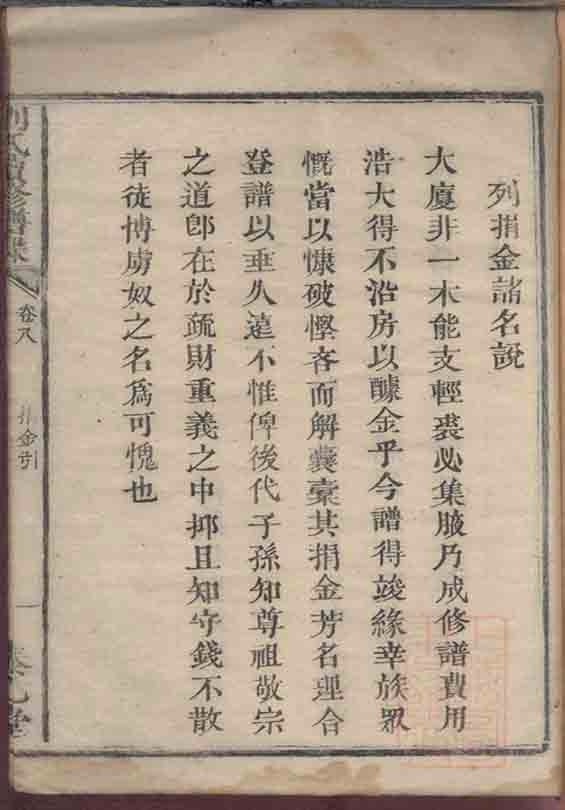 列捐金諸名說
大廈非一木能支輕裘必集腋乃成修譜費用
浩大得不沿房以醵金乎今譜得竣緣幸族眾
慨當以慷破慳吝而解囊橐其捐金芳名理合
登譜以垂久遠不惟俾後代子孫知尊祖敬宗
之道卽在於疏財重義之中抑且知守錢不散
者徒博虜奴之名爲可愧也
劉氏續修譜牒
卷八
捐金引
一